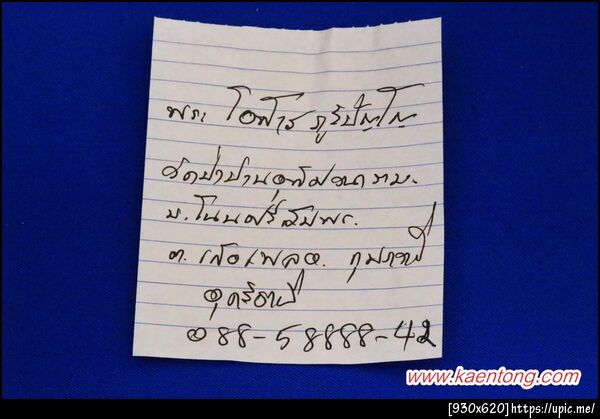 พระ โอฬาร ภูริปัญโญ
วัดป่าบ้าน
บ. โนนศรีสัมพร.
ต. เสอเพลอ. กุมภวาปี
อุดรธานี
088-58888-42
www.kaentong.com
[930x620]https://upic.me/